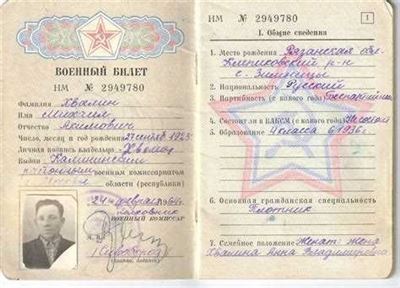 ВОЕННЫЙ БИЛЕТ
НМ № 2949780
Фамилия Хвалин
Имя Михаил
Отчество Акимович
Число, месяц и год рождения 1923
Личная подпись владельца
Выдан Калининским
районным военным комиссариатом
области (республики)
24 февраля
полковник
ВОЕННЫЙ КОМИССАР
НМ № 2949780
1
I. Общие сведения
1. Место рождения Рязанская обл.
р-н
с.
2. Национальность Русский
3. Партийность (с какого года) беспартийный
4. Состоит ли в ВЛКСМ (с какого года) Не состоит
5. Образование 4 класса в 1936 г.
6. Основная гражданская специальность
Плотник
7. Семейное положение Женат жена
Хвалина Анна Владимировна